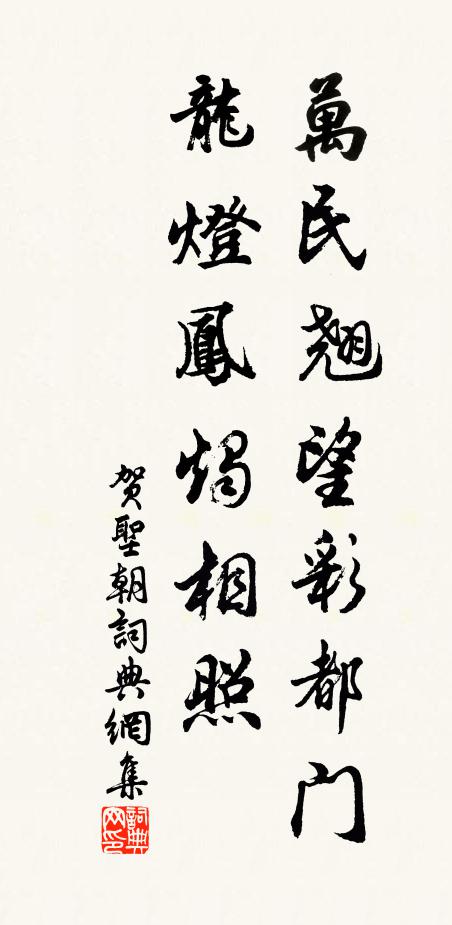 萬民翹望彩都門
龍燈鳳燭相照
賀聖朝詞典網集
詞典网印